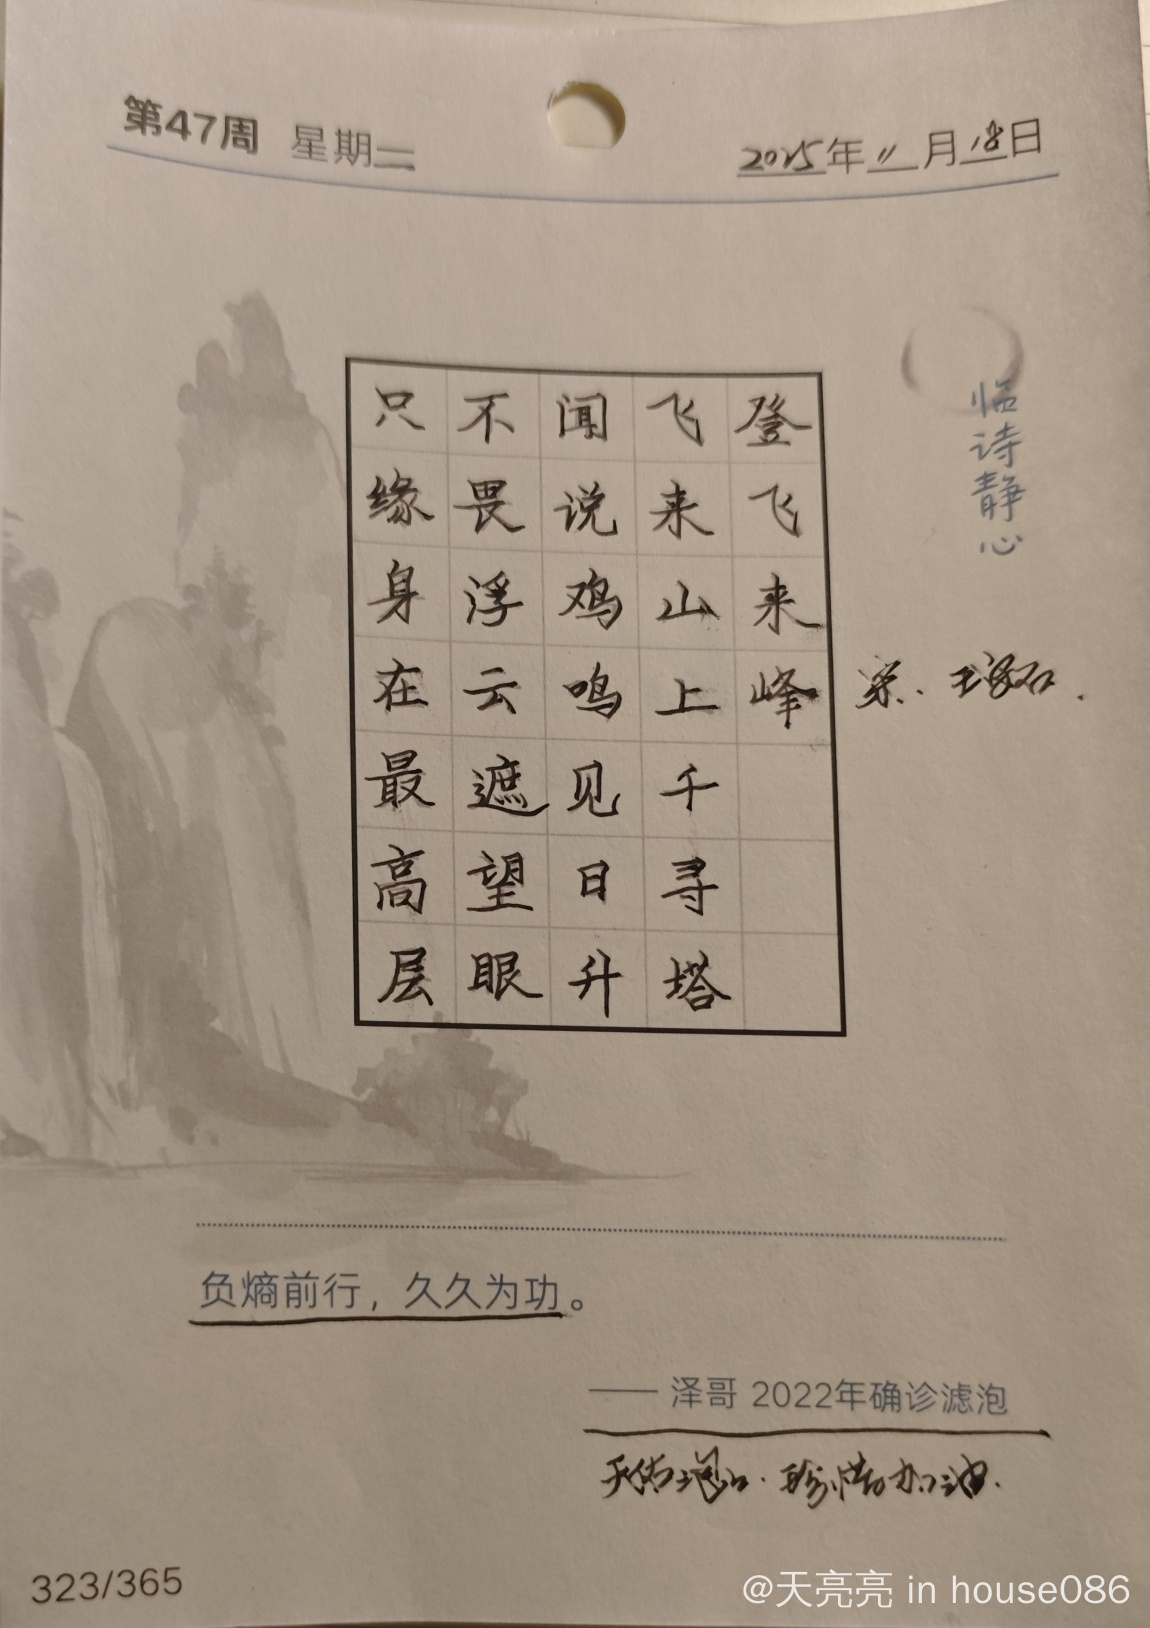 第47周 星期二
2025年11月18日
临诗静心
登飞来峰
宋.王安石.
飞来山上千寻塔
闻说鸡鸣见日升
不畏浮云遮望眼
只缘身在最高层
负熵前行，久久为功。
—— 泽哥 2022年确诊滤泡
珍惜加油.
323/365
@天亮亮 in house086